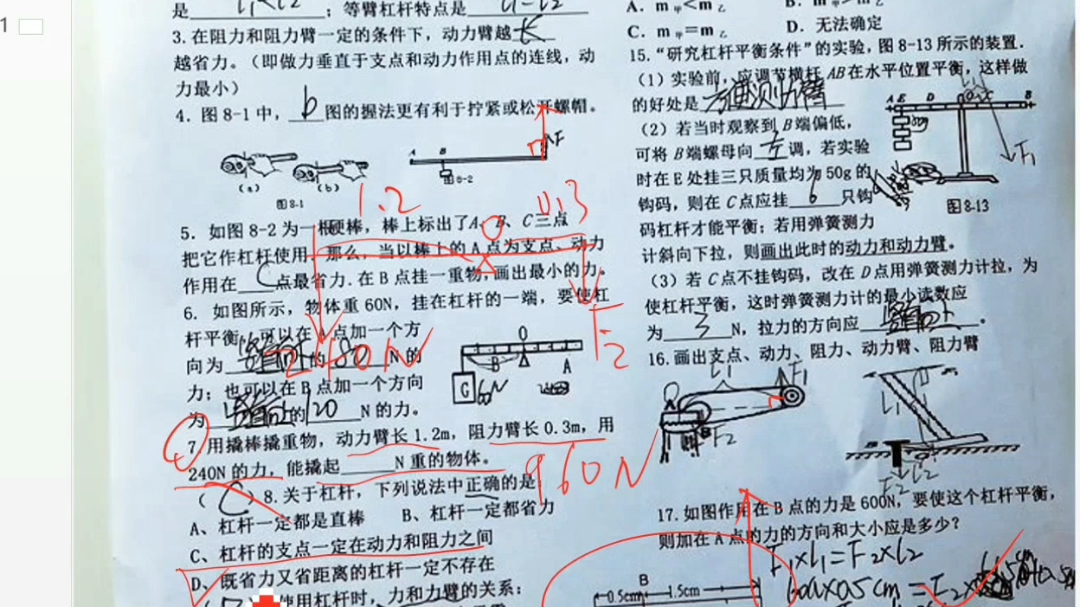 1
是 L₁<L₂ ；等臂杠杆特点是 L₁=L₂
3.在阻力和阻力臂一定的条件下，动力臂越长
越省力。（即做力垂直于支点和动力作用点的连线，动
力最小）
4．图8-1中，b图的握法更有利于拧紧或松开螺帽。
A B F
(a) (b) 图8-2
图8-1
1.2 0.3
5．如图8-2为一根硬棒，棒上标出了A、B、C三点
把它作杠杆使用，那么，当以棒上的A点为支点，动力
作用在C点最省力.在B点挂一重物，画出最小的力。
6．如图所示，物体重60N，挂在杠杆的一端，要使杠
杆平衡，可以在A点加一个方
向为竖直向下的80N的
力；也可以在B点加一个方向
为竖直向上的120N的力。
O
B A
G 60N
240N
F₂
7.用撬棒撬重物，动力臂长1.2m，阻力臂长0.3m，用
240N的力，能撬起 N重的物体。
960N
（C）8.关于杠杆，下列说法中正确的是
A、杠杆一定都是直棒 B、杠杆一定都省力
C、杠杆的支点一定在动力和阻力之间
D、既省力又省距离的杠杆一定不存在
使用杠杆时，力和力臂的关系：
A．m甲<m乙
C．m甲=m乙 D．无法确定
15．“研究杠杆平衡条件”的实验，图8-13所示的装置．
（1）实验前，应调节横杆AB在水平位置平衡，这样做
的好处是方便测力臂
（2）若当时观察到B端偏低，
可将B端螺母向左调，若实验
时在E处挂三只质量均为50g的
钩码，则在C点应挂6只钩
码杠杆才能平衡；若用弹簧测力
计斜向下拉，则画出此时的动力和动力臂。
A E D B
F₁
图8-13
（3）若C点不挂钩码，改在D点用弹簧测力计拉，为
使杠杆平衡，这时弹簧测力计的最小读数应
为3N，拉力的方向应竖直向上。
16.画出支点、动力、阻力、动力臂、阻力臂
L₁ F₁
B F₂
L₁
F₂ L₂
17.如图作用在B点的力是600N，要使这个杠杆平衡，
则加在A点的力的方向和大小应是多少？
F₁×L₁=F₂×L₂
B
0.5cm 1.5cm